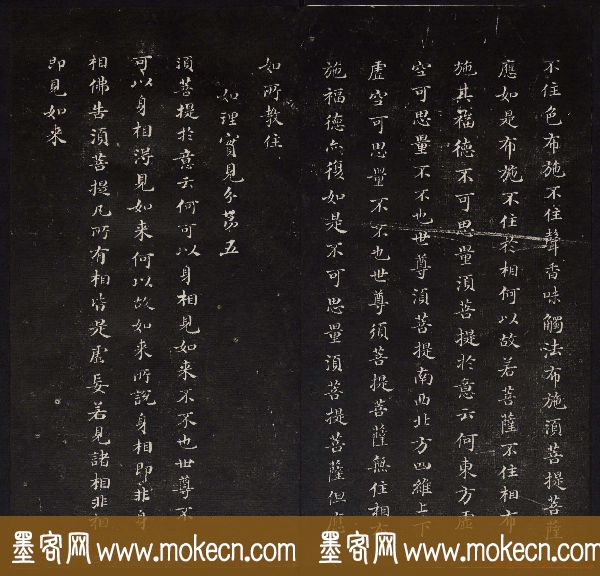 不住色布施不住聲香味觸法布施須菩提菩薩
應如是布施不住於相何以故若菩薩不住相布
施其福德不可思量須菩提於意云何東方虛
空可思量不不也世尊須菩提南西北方四維上下
虛空可思量不不也世尊須菩提菩薩無住相布
施福德亦復如是不可思量須菩提菩薩但應
如所教住
如理實見分第五
須菩提於意云何可以身相見如來不不也世尊不
可以身相得見如來何以故如來所說身相即非身
相佛告須菩提凡所有相皆是虛妄若見諸相非相
即見如来
墨客网 www.mokecn.com
墨客网 www.mokecn.com